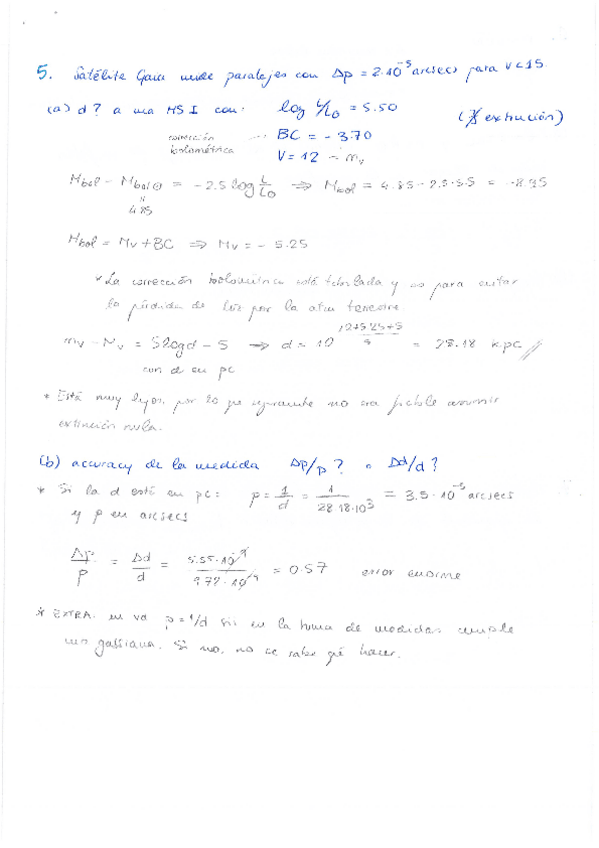 5. Satélite Gaia mide paralajes con Δp = 2·10⁻⁵ arcsecs para V<15.
(a) d? a una MS I con: log L/L⊙ = 5.50 (∄ extinción)
corrección bolométrica ... BC = -3.70
V = 12 - mᵥ
Mbol - Mbol⊙ = -2.5 log L/L⊙ ⇒ Mbol = 4.85 - 2.5·5.5 = -8.95
4.85
Mbol = Mv + BC ⇒ Mv = -5.25
* La corrección bolométrica está tabulada y es para evitar
la pérdida de luz por la atm terrestre
mv - Mv = 5logd - 5 → d = 10^(12+5.25+5)/5 = 28.18 kpc //
con d en pc
* Está muy lejos, por lo que seguramente no sea factible asumir
extinción nula.
(b) accuracy de la medida Δp/p? o Δd/d?
* Si la d está en pc: p = 1/d = 1/28.18·10³ = 3.5·10⁻⁵ arcsecs
y p en arcsecs
Δp/p = Δd/d = = 0.57 error enorme
* EXTRA. p = 1/d si en la toma de medidas cumple
una gaussiana. Si no, no se sabe qué hacer.